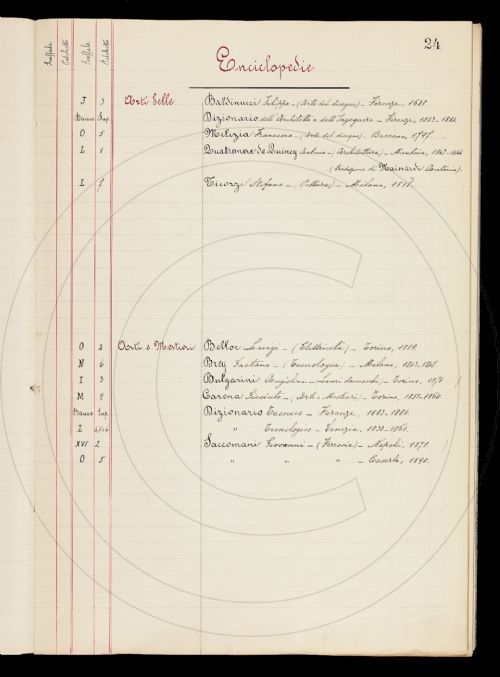 24
Scaffale Palchetto Scaffale Palchetto
Enciclopedie
I 3 Arti belle Baldinucci Filippo - (Arti del disegno) - Firenze, 1681.
Banco Sup. Dizionario dell'Architetto e dell'Ingegnere - Firenze, 1883-1884.
O 5 Milizia Francesco - (Arte del disegno) - Bassano, 1797.
L 1 Quatremère de Quincy Antonio - (Architettura) - Mantova, 1842-1844
(Traduzione di Mainardi Antonio).
L 7 Ticozzi Stefano - (Pittura) - Milano, 1818.
O 2 Arti e Mestieri Bellor Luigi - (Elettricità) - Torino, 1889.
N 6 Brey Gaetano - (Tecnologia) - Milano, 1843-1848.
I 3 Bulgarini - Torino, 1874
M 9 Carena Giacinto - (Arti e Mestieri) - Torino, 1851-1860.
Banco Sup. Dizionario Tecnico - Firenze, 1883-1884.
L " Tecnologico - Venezia, 1830-1861.
XVI 2 Saccomani Giovanni - (Ferrovie) - Napoli, 1871.
O 5 " " " - Caserta, 1890.
C